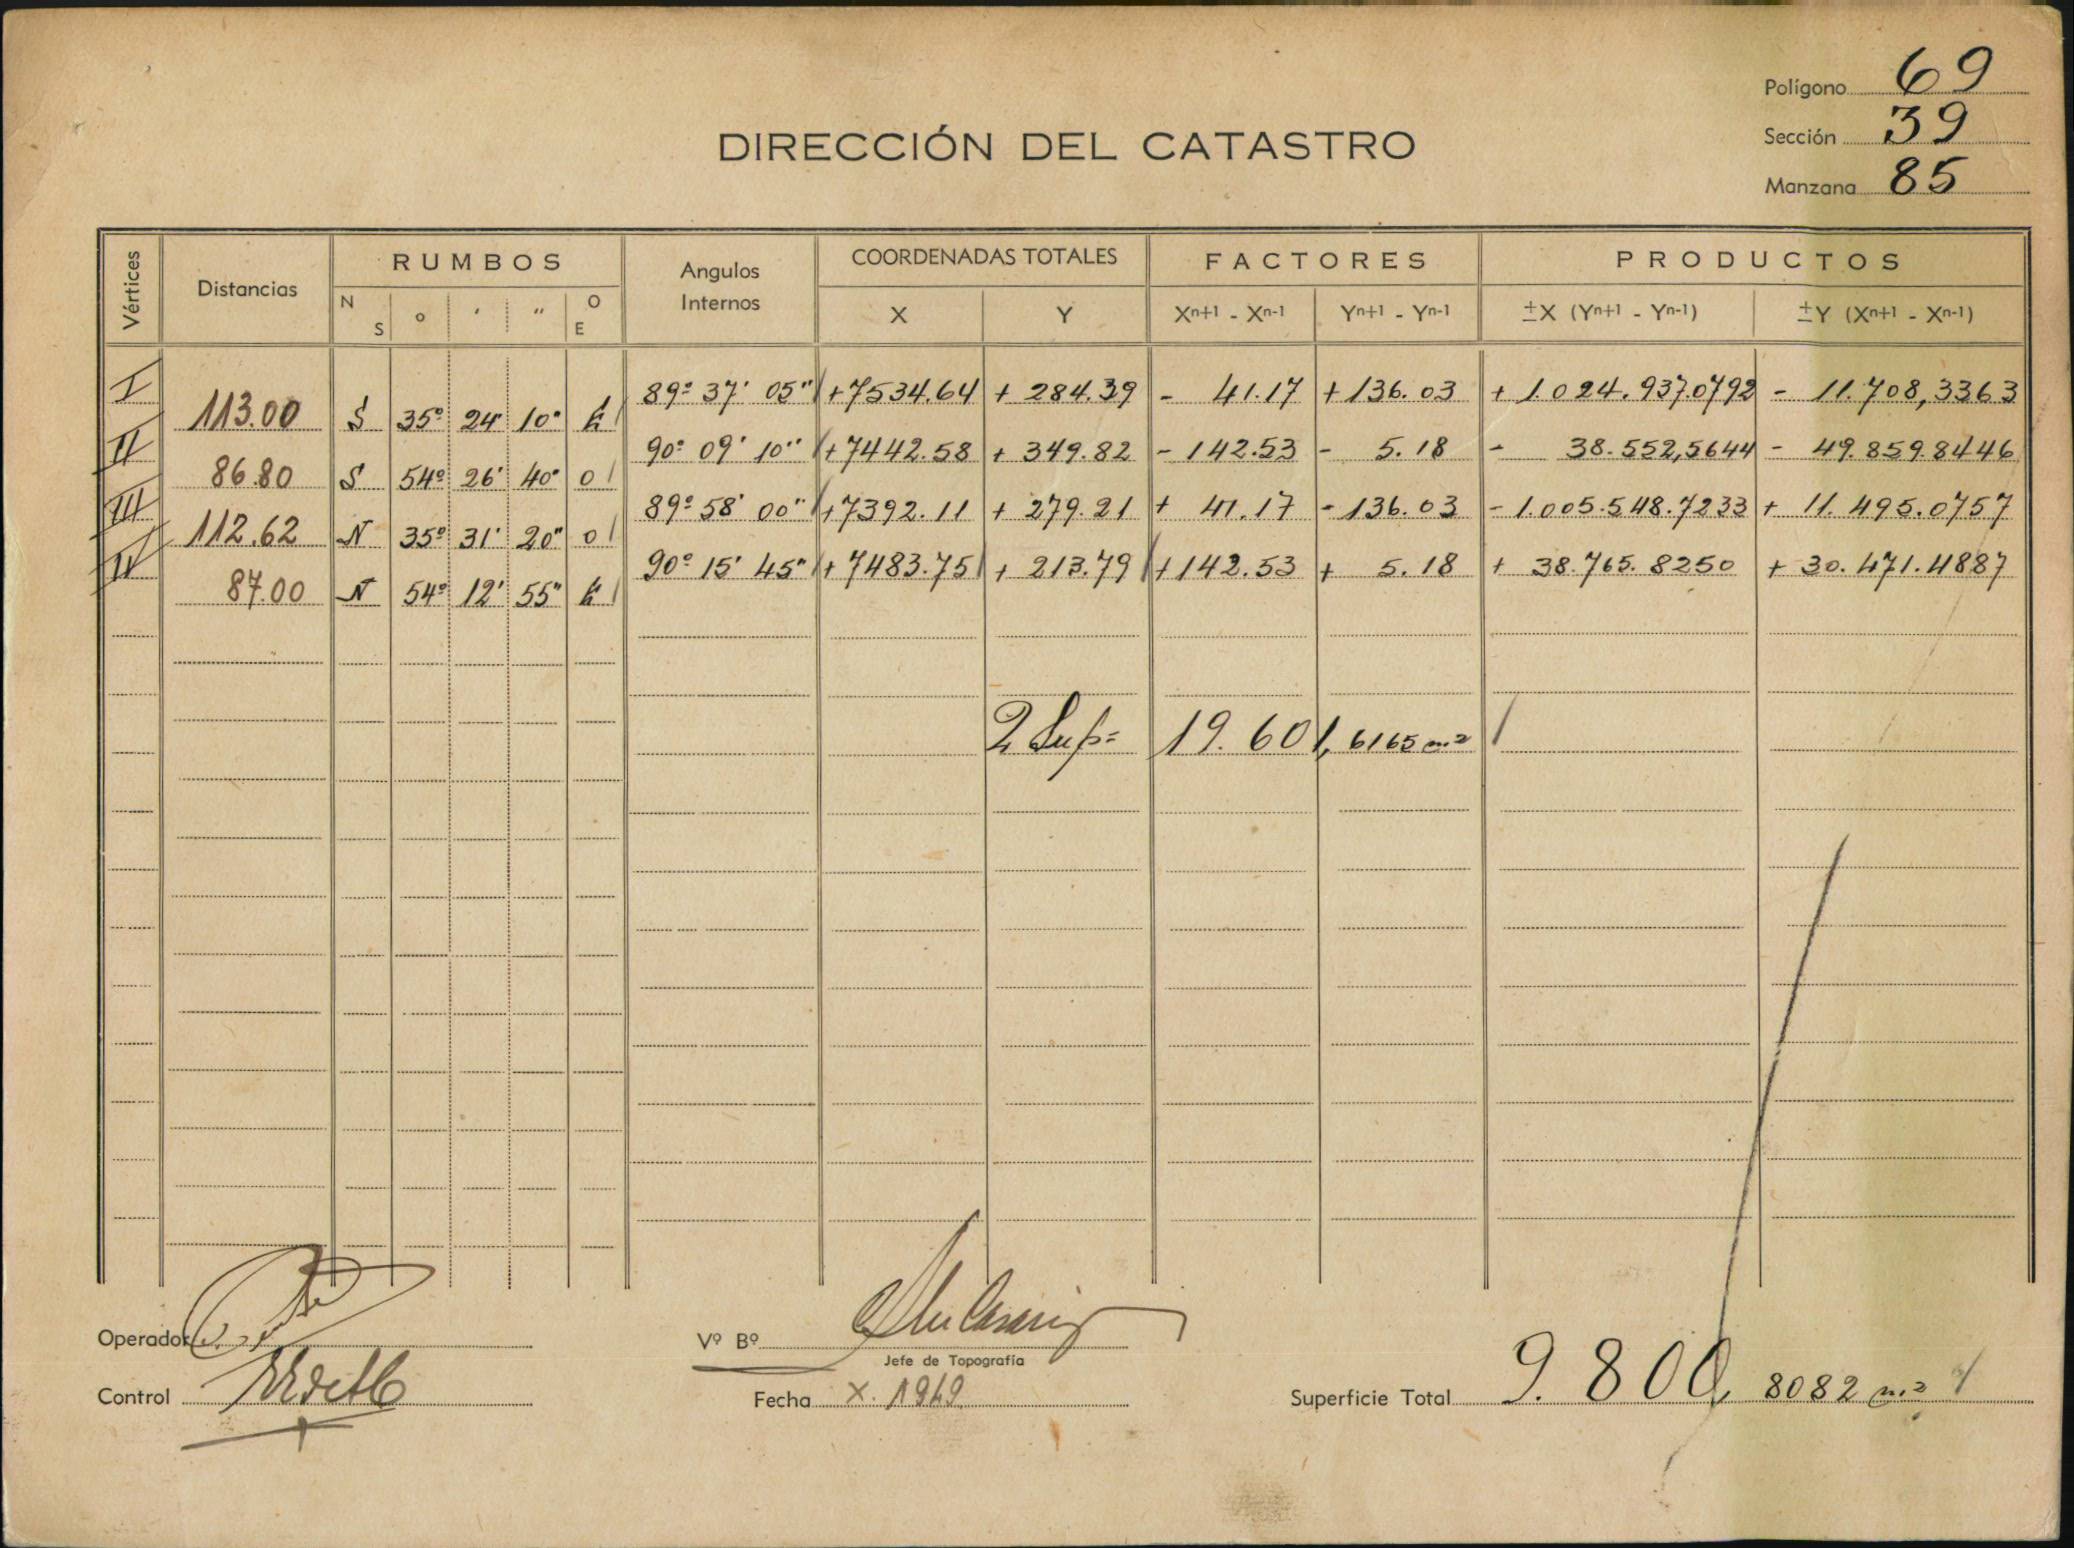 Polígono 69
Sección 39
Manzana 85
DIRECCIÓN DEL CATASTRO
Vértices Distancias RUMBOS Angulos Internos COORDENADAS TOTALES FACTORES PRODUCTOS
N S ° ′ ″ O E X Y Xn+1 - Xn-1 Yn+1 - Yn-1 ±X (Yn+1 - Yn-1) ±Y (Xn+1 - Xn-1)
I 89° 37' 05" +7534.64 + 284.39 - 41.17 +136.03 + 1.024.937.0792 - 11.708,3363
113.00 S 35° 24' 10" E
II 90° 09' 10" +7442.58 + 349.82 - 142.53 - 5.18 - 38.552,5644 - 49.859.8446
86.80 S 54° 26' 40" O
III 89° 58' 00" +7392.11 + 279.21 + 41.17 - 136.03 - 1.005.548.7233 + 11.495.0757
112.62 N 35° 31' 20" O
IV 90° 15' 45" + 7483.75 + 213.79 +142.53 + 5.18 + 38.765.8250 + 30.471.4887
87.00 N 54° 12' 55" E
2 Sup= 19.601,6165 m2
Operador
Vº Bº
Jefe de Topografía
Control
Fecha X. 1949
Superficie Total 9.800,8082 m2